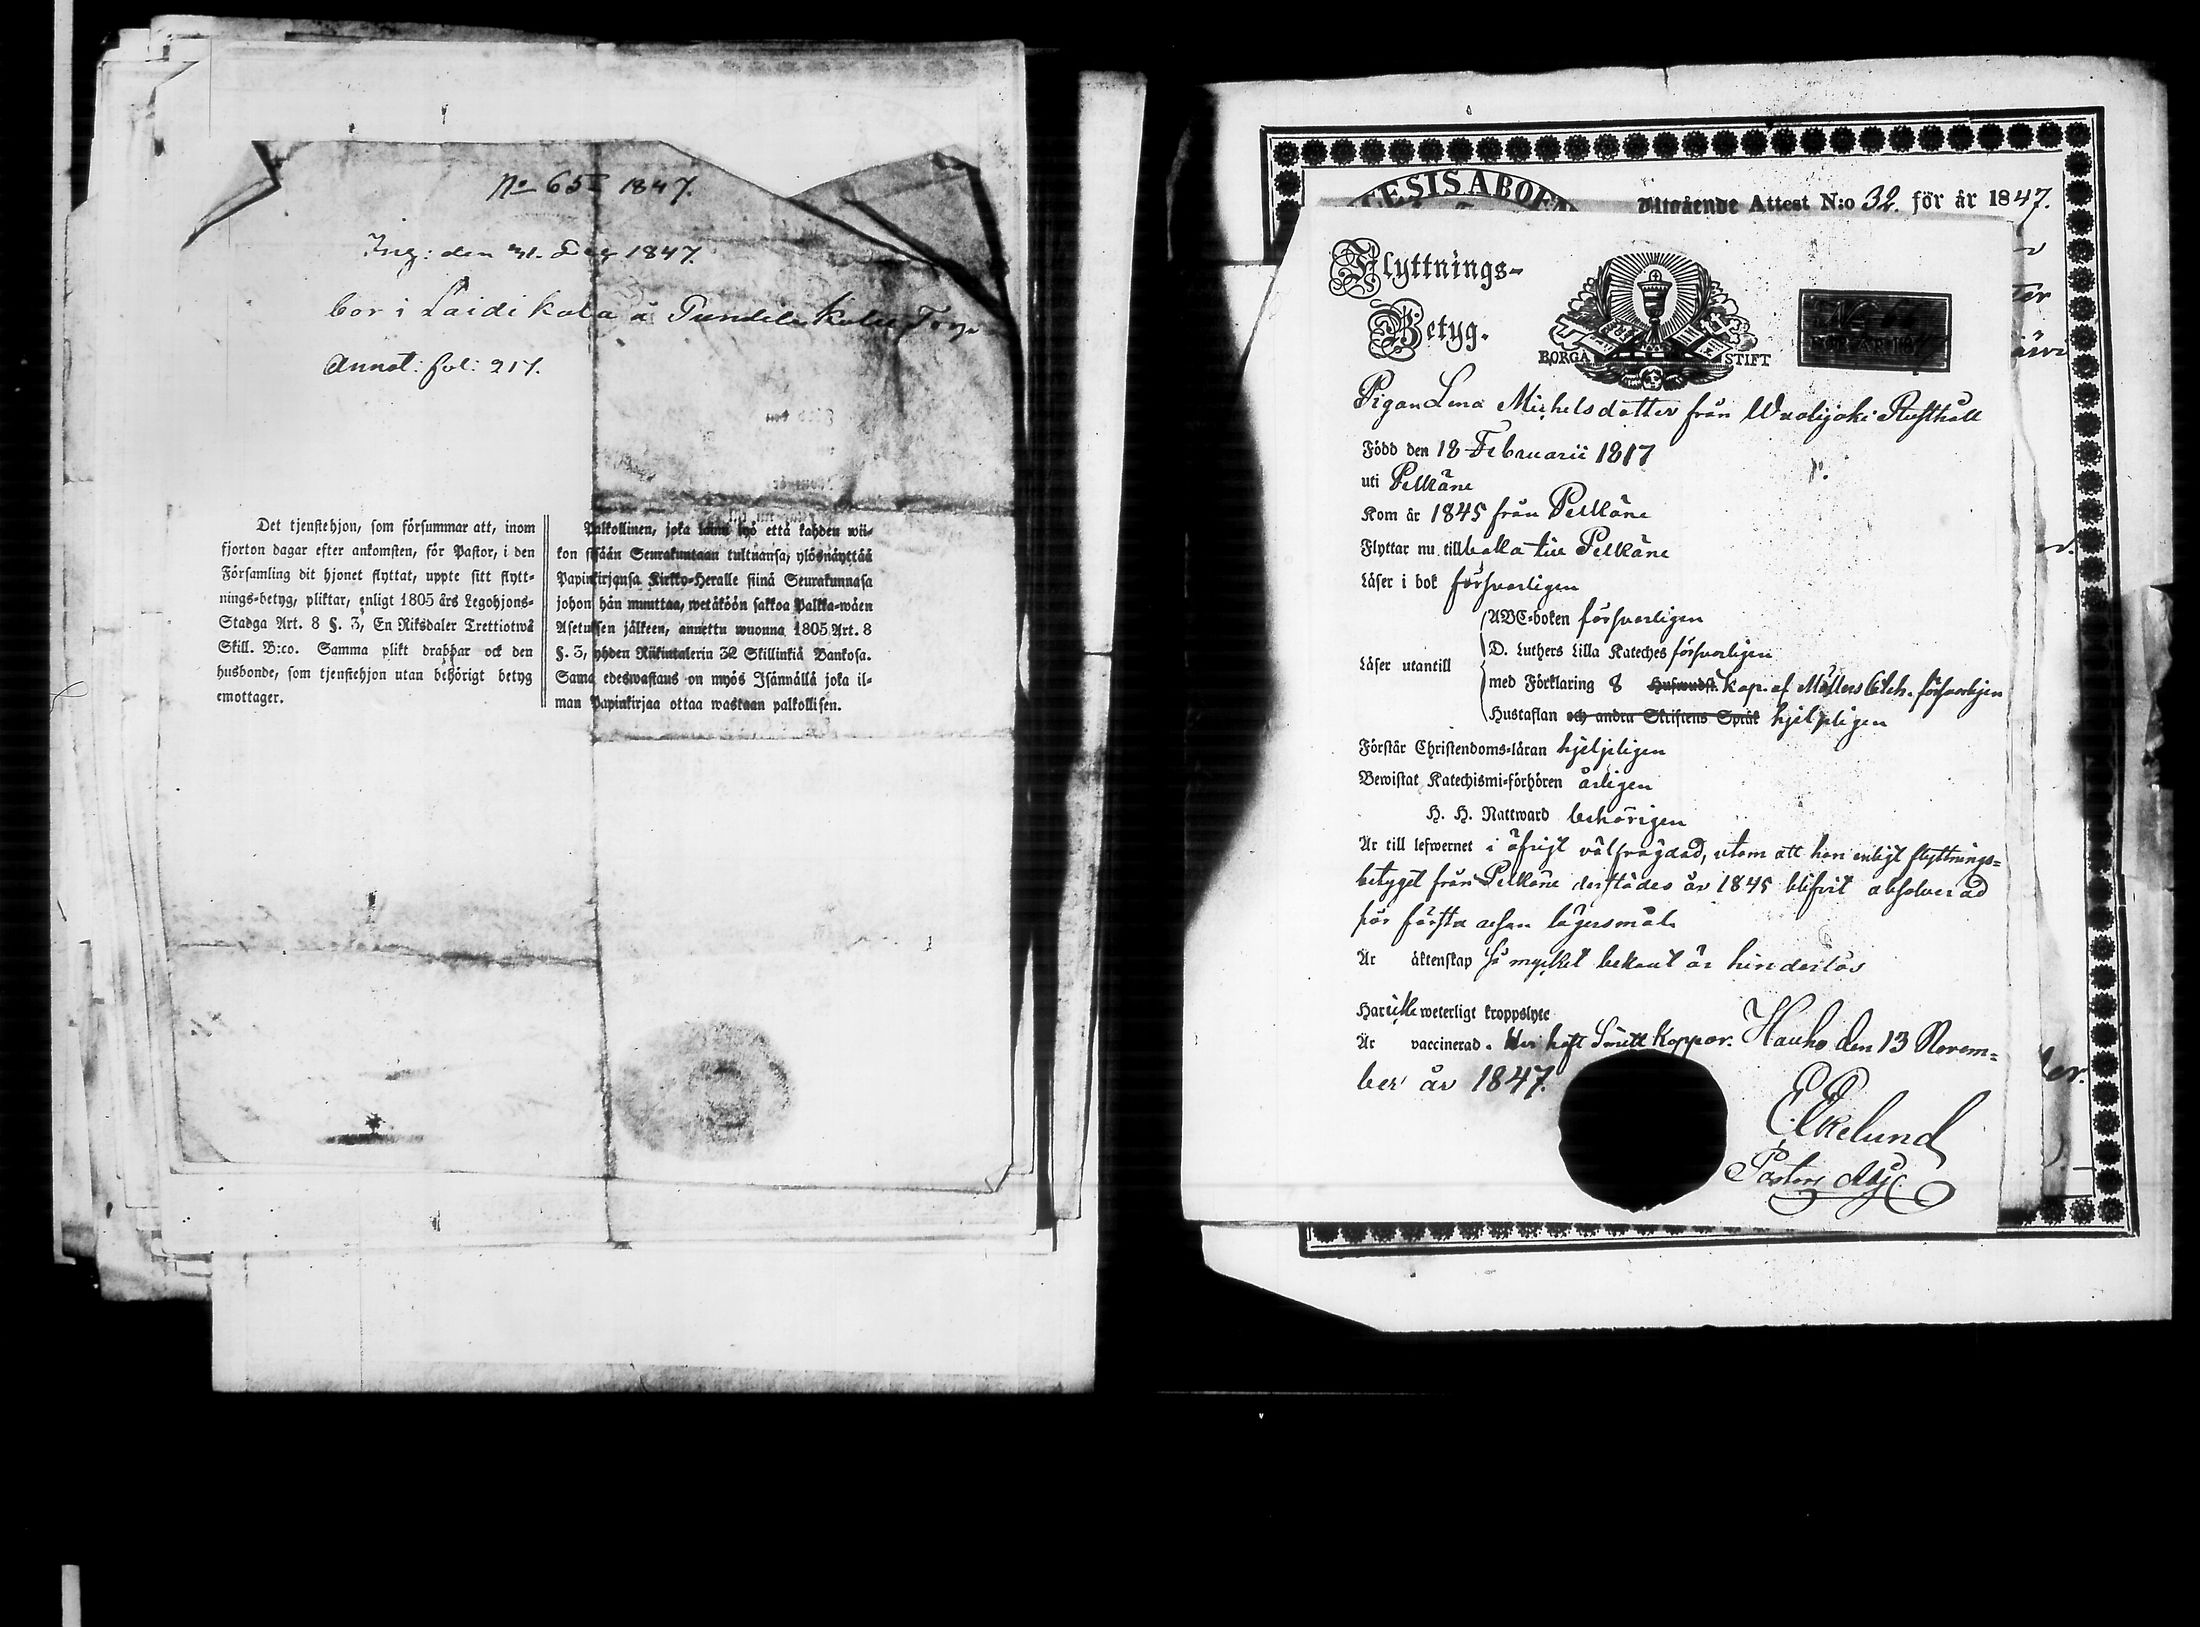 No 65 1847.
Ing: den 31. Dec 1847.
bor i Laidikala
Annot: fol: 217.
Det tjenstehjon, som försummar att, inom
fjorton dagar efter ankomsten, för Pastor, i den
Församling dit hjonet flyttat, uppte sitt flytt-
nings-betyg, pliktar, enligt 1805 års Legohjons-
Stadga Art. 8 §. 3, En Riksdaler Trettiotwå
Skill. B:co. Samma plikt drabbar ock den
husbonde, som tjenstehjon utan behörigt betyg
emottager.
Palkollinen, joka laimi lyö että kahden wii-
kon sisään Seurakuntaan tultuansa, ylösnäyttää
Papinkirjansa Kirkko-Heralle siinä Seurakunnasa
johon hän muuttaa, wetäköön sakkoa Palkka-wäen
Asetuksen jälkeen, annettu wuonna 1805 Art. 8
§. 3, yhden Riikintalerin 32 Skillinkiä Bankosa.
Sama edeswastaus on myös Isännällä joka il-
man Papinkirjaa ottaa wastaan palkollisen.
Utgående Attest N:o 32. för år 1847.
Flyttnings-
Betyg.
BORGÅ STIFT
Pigan Lena Michelsdotter från Wuolijoki Rusthåll
Född den 18 Februarii 1817
uti Pelkäne
Kom år 1845 från Pelkäne
Flyttar nu till baka till Pelkäne
Läser i bok försvarligen
Läser utantill
ABC-boken försvarligen
D. Luthers Lilla Kateches försvarligen
med Förklaring 8 Huswudst. kap. af Möllers Catech. försvarligen
Hustaflan och andra Skriftens Språk hjelpligen
Förstår Christendoms-läran hjelpligen
Bewistat Katechismi-förhören årligen
H. H. Nattward behörigen
Är till lefwernet i öfrigt välfrägdad, utom att hon enligt flyttnings-
betyget från Pelkäne derstädes år 1845 blifvit absolverad
för första resan lägersmål.
Är äktenskap så mycket bekant är hinderlös
Har icke weterligt kroppslyte
Är vaccinerad. Har haft Smittkoppor. Hauho den 13 Novem-
ber år 1847.
E. Ekelund
Pastors Adj.